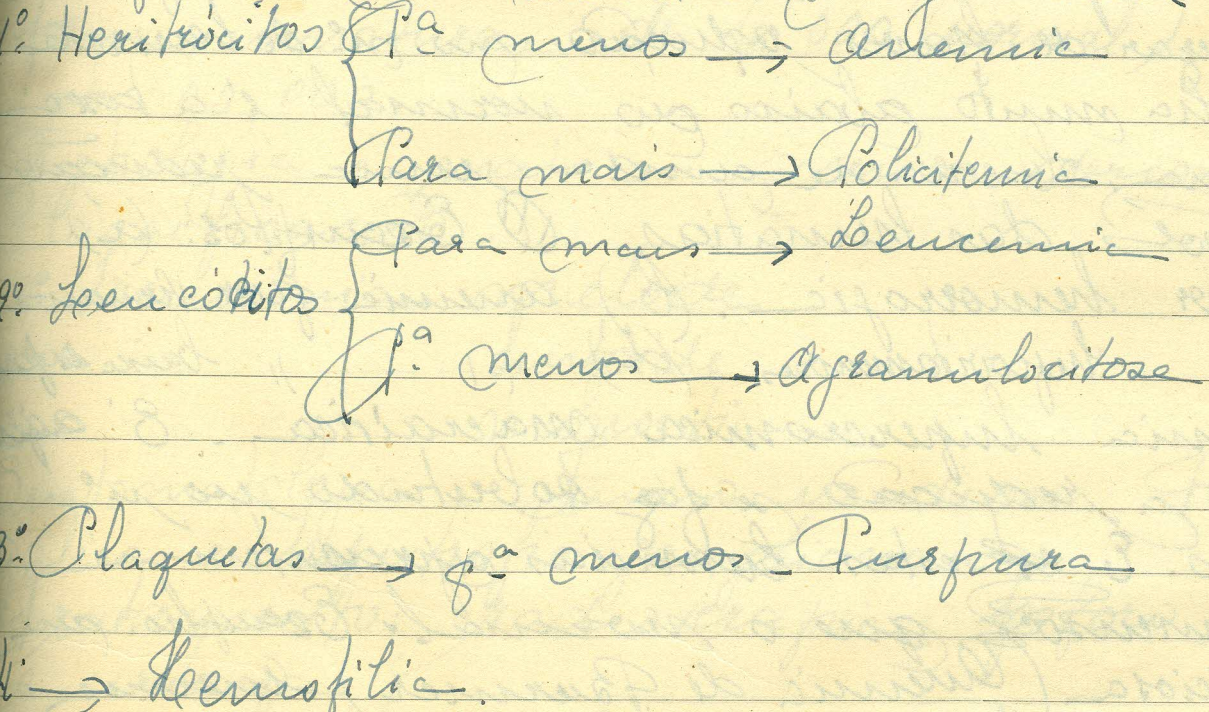 1º. Heritrócitos { Pª menos → Anemia
Para mais → Policitemia
Para mais → Leucemia
2º. Leucócitos {
Pª. menos → Agranulocitose
3º. Plaquetas → pª menos - Purpura
4º. → Hemofilia.